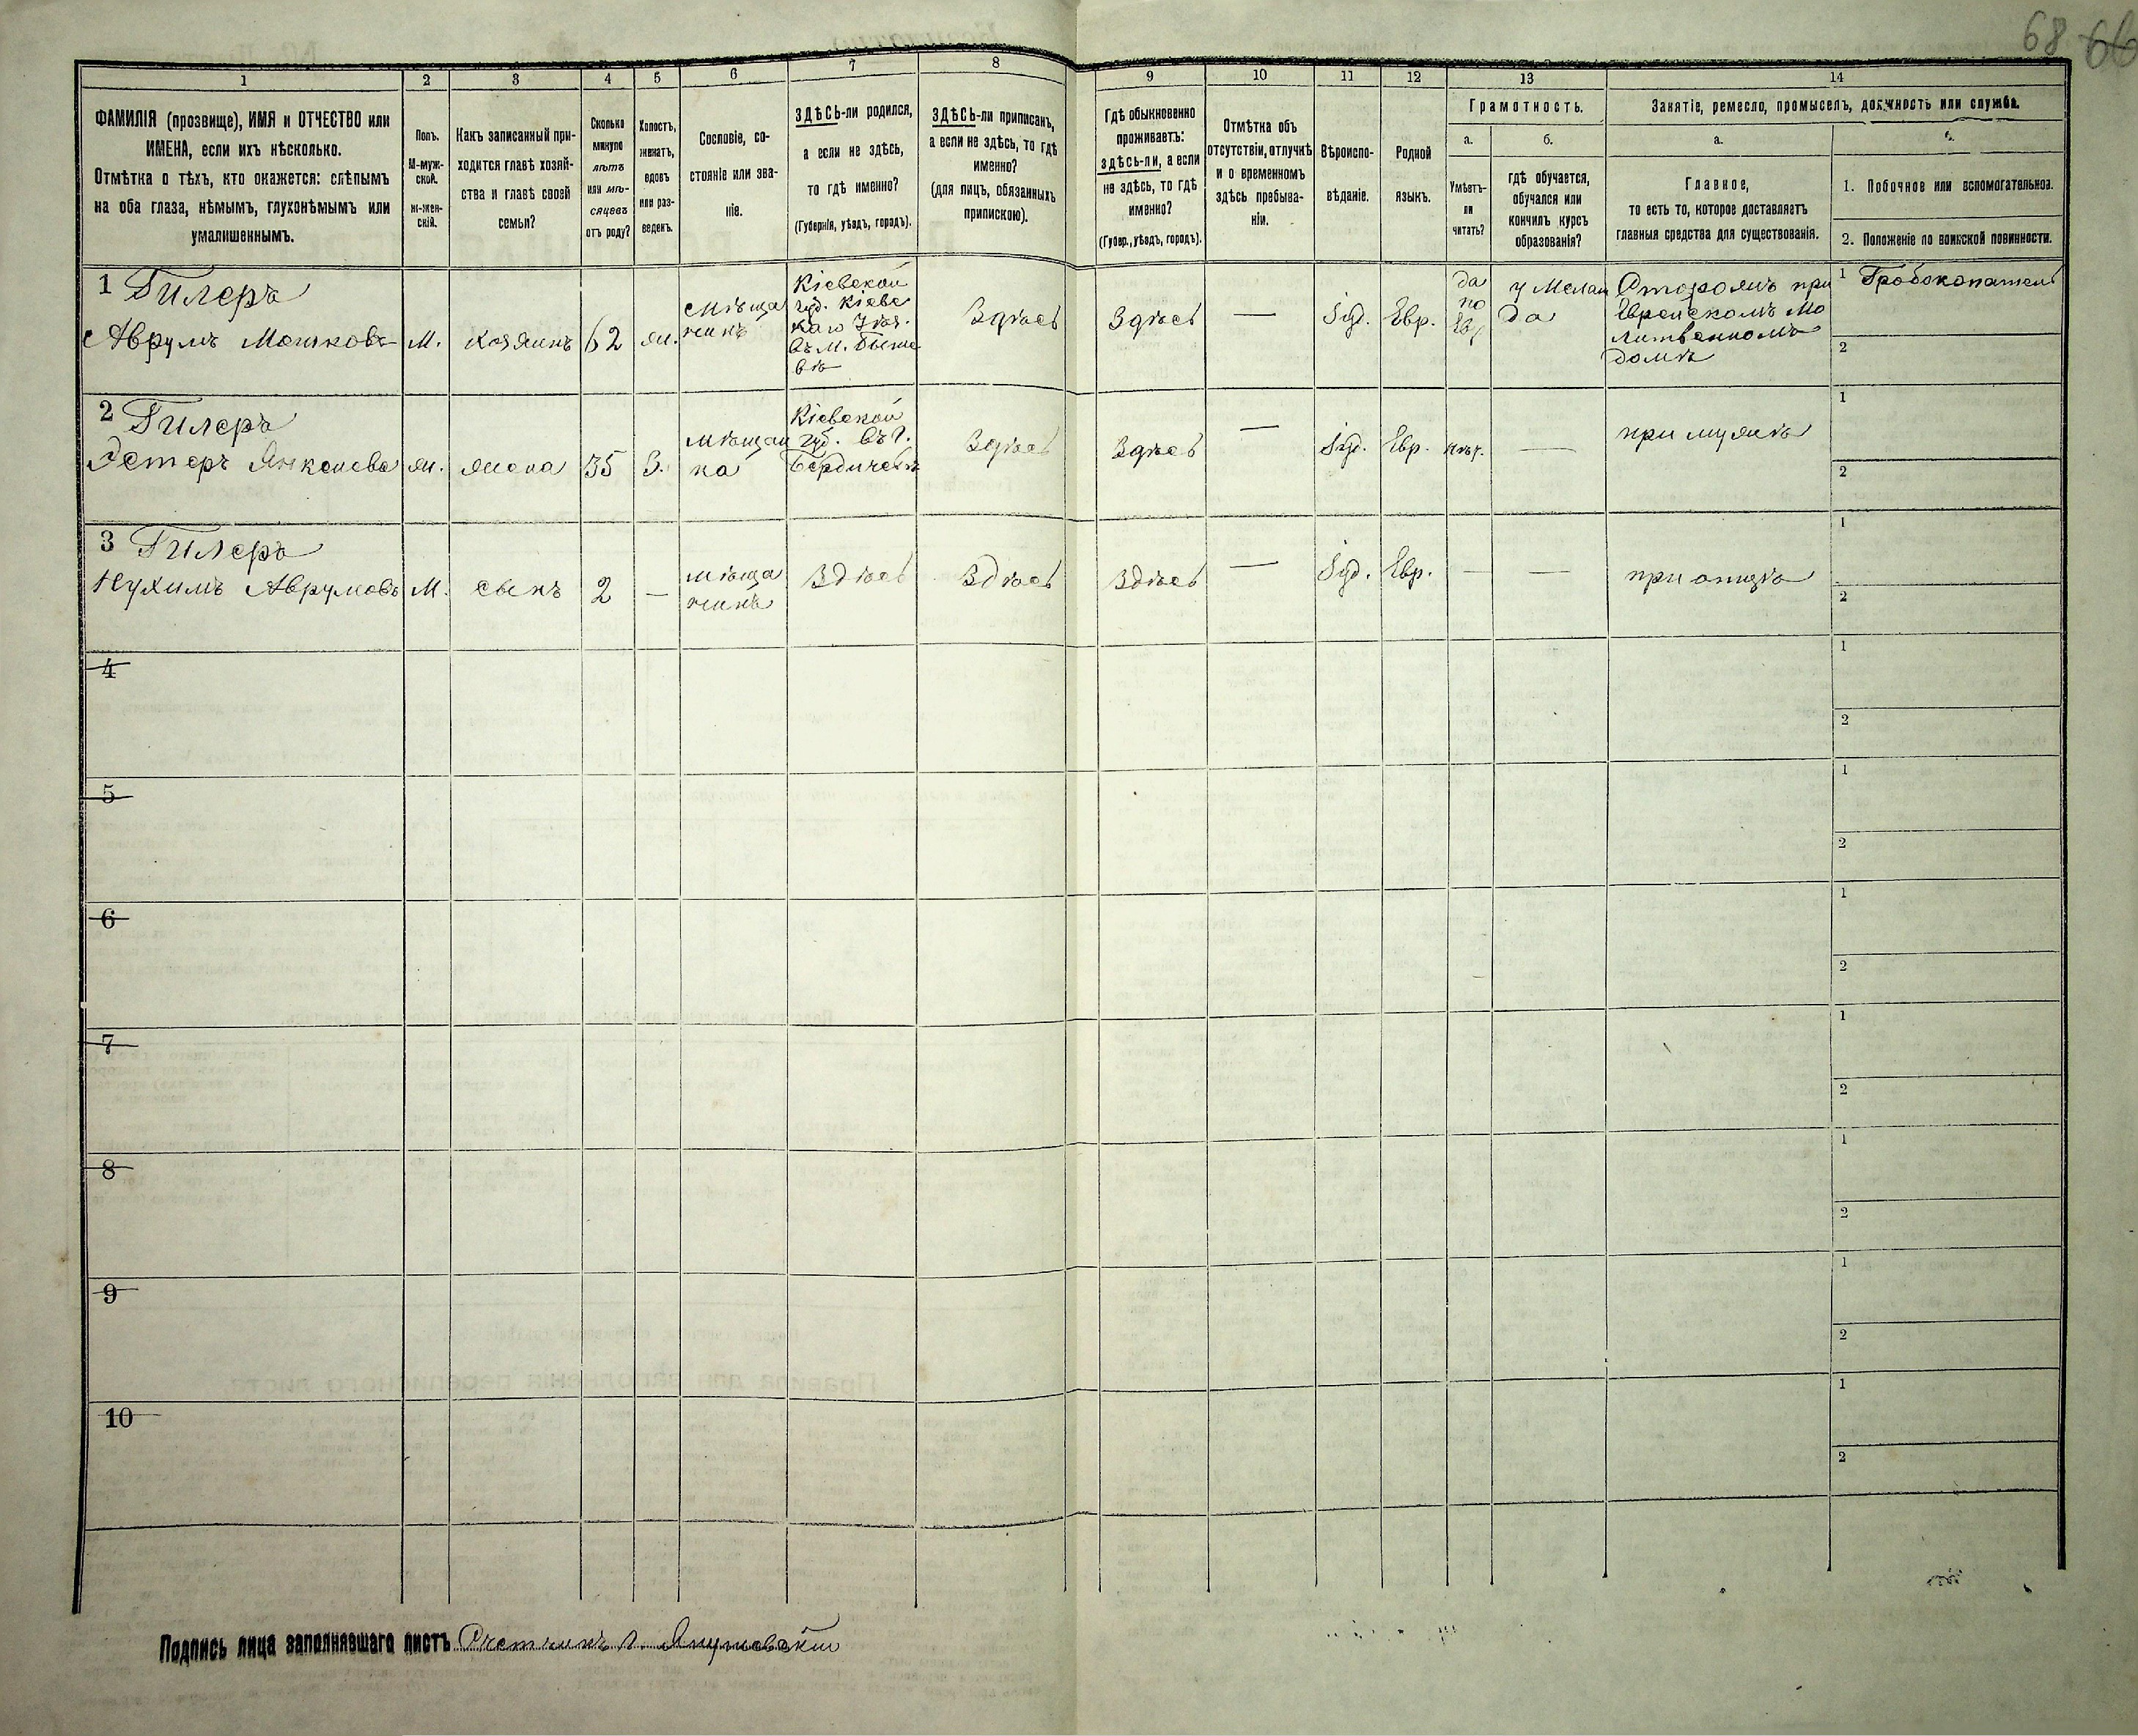 68 66
1 2 3 4 5 6 7 8 9 10 11 12 13 14
ФАМИЛІЯ (прозвище), ИМЯ и ОТЧЕСТВО или
ИМЕНА, если ихъ нѣсколько.
Отмѣтка о тѣхъ, кто окажется: слѣпымъ
на оба глаза, нѣмымъ, глухонѣмымъ или
умалишеннымъ.
Полъ.
М-муж-
ской.
ж-жен-
скій.
Какъ записанный при-
ходится главѣ хозяй-
ства и главѣ своей
семьи?
Сколько
минуло
лѣтъ
или мѣ-
сяцевъ
отъ роду?
Холостъ,
женатъ,
вдовъ
или раз-
веденъ.
Сословіе, со-
стояніе или зва-
ніе.
ЗДѢСЬ-ли родился,
а если не здѣсь,
то гдѣ именно?
(Губернія, уѣздъ, городъ).
ЗДѢСЬ-ли приписанъ,
а если не здѣсь, то гдѣ
именно?
(для лицъ, обязанныхъ
припискою).
Гдѣ обыкновенно
проживаетъ:
здѣсь-ли, а если
не здѣсь, то гдѣ
именно?
(Губер., уѣздъ, городъ).
Отмѣтка объ
отсутствіи, отлучкѣ
и о временномъ
здѣсь пребыва-
ніи.
Вѣроиспо-
вѣданіе.
Родной
языкъ.
Грамотность.
а. б.
Умѣетъ-
ли
читать?
гдѣ обучается,
обучался или
кончилъ курсъ
образованія?
Занятіе, ремесло, промыселъ, должность или служба.
а.
Главное,
то есть то, которое доставляетъ
главныя средства для существованія.
1. Побочное или вспомогательное.
2. Положеніе по воинской повинности.
1 Гилеръ
Аврумъ Мошковъ
М.
хозяинъ
62
ж.
Мѣща
нинъ
Кіевской
губ. Кіевс
каго Уѣз.
въ м. Быше
вѣ
Здѣсь
Здѣсь
—
Іуд.
Евр.
да
по
Евр
у Мелам
да
Сторожъ при
Еврейскомъ Мо
литвенномъ
домѣ
1 Гробокопатель
2
2 Гилеръ
Эстеръ Янкелева
ж.
жена
35
З.
мѣщан
ка
Кіевской
губ. въ г.
Бердичевѣ
Здѣсь
Здѣсь
—
Іуд.
Евр.
нѣт.
—
при мужѣ
1
2
3 Гилеръ
Нухимъ Аврумовъ
М.
сынъ
2
—
мѣща
нинъ
Здѣсь
Здѣсь
Здѣсь
—
Іуд.
Евр.
—
—
при отцѣ
1
2
4
1
2
5
1
2
6
1
2
7
1
2
8
1
2
9
1
2
10
1
2
Подпись лица заполнявшаго листъ Счетчикъ